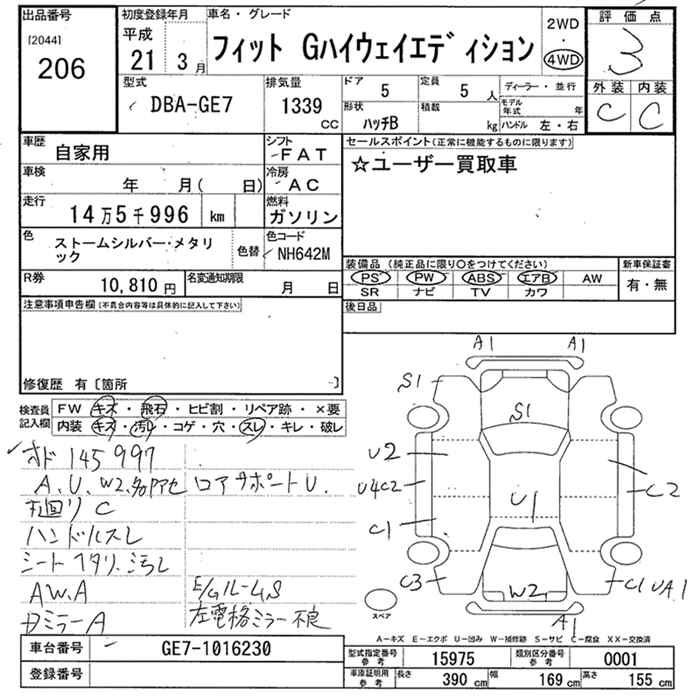 出品番号
[2044]
206
初度登録年月
平成
21年 3月
車名・グレード
フィット Gハイウェイエディション
2WD
・
4WD
評価点
3
外装 内装
C C
型式
DBA-GE7
排気量
1339
CC
ドア
5
定員
5 人
形状
ハッチB
積載
kg
ディーラー・並行
モデル年式 年
ハンドル 左・右
車歴
自家用
シフト
FAT
車検
年 月( 日)
冷房
AC
走行
14万5千996 km
燃料
ガソリン
色
ストームシルバー・メタリック
色替
色コード
NH642M
R券
10,810円
名変通知期限
月 日
セールスポイント(正常に機能するものに限ります)
☆ユーザー買取車
装備品 (純正品に限り○をつけてください)
PS PW ABS エアB AW
SR ナビ TV カワ
新車保証書
有・無
後日品
注意事項申告欄(不具合内容等は具体的に記入して下さい)
修復歴 有〔箇所 〕
検査員記入欄
FW キズ・飛石・ヒビ割・リペア跡・×要
内装 キズ・汚れ・コゲ・穴・スレ・キレ・破レ
オド 145997
A、U、W2、多力アセ ロアサポートU.
下回り C
ハンドルスレ
シート ヘタリ、汚レ
AW.A E/Gルーム S
ドミラーA 左電格ミラー不良
A1 A1
S1
S1
U2
U4C2
U1
C2
C1
C3
W2
C1 UA.1
A1
スペア
A―キズ E―エクボ U―凹み W―補修跡 S―サビ C―腐食 XX―交換済
車台番号
GE7-1016230
登録番号
型式指定番号 参考
15975
類別区分番号 参考
0001
車添証明用 参考
長さ 390 cm
幅 169 cm
高さ 155 cm